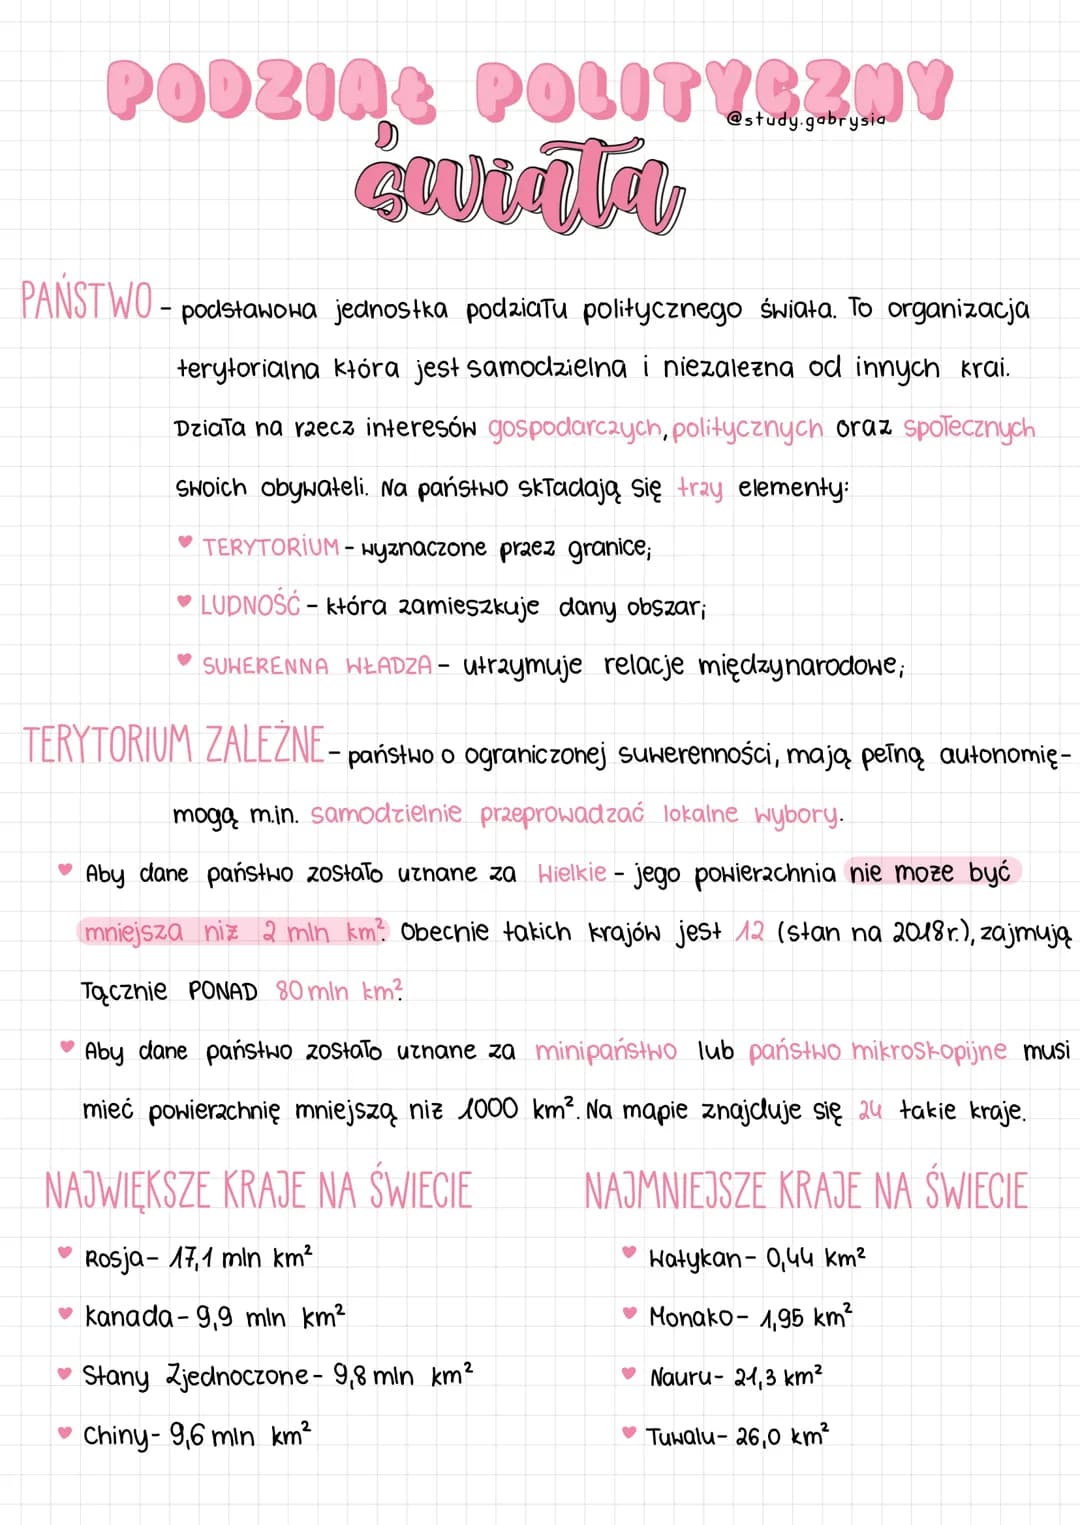 PODZIAŁ POLITYCZNY
@study.gabrysia
świata
PAŃSTWO - podstawowa jednostka podziału politycznego świata. To organizacja
terytorialna która jest samodzielna i niezależna od innych krai.
Działa na rzecz interesów gospodarczych, politycznych oraz społecznych
swoich obywateli. Na państwo składają się trzy elementy:
♥ TERYTORIUM - wyznaczone przez granice;
♥ LUDNOŚĆ - która zamieszkuje dany obszar;
♥ SUWERENNA WŁADZA - utrzymuje relacje międzynarodowe;
TERYTORIUM ZALEŻNE - państwo o ograniczonej suwerenności, mają pełną autonomię -
mogą m.in. samodzielnie przeprowadzać lokalne wybory.
♥ Aby dane państwo zostało uznane za wielkie - jego powierzchnia nie może być
mniejsza niż 2 mln km². Obecnie takich krajów jest 12 (stan na 2018r.), zajmują
łącznie PONAD 80 mln km².
♥ Aby dane państwo zostało uznane za minipaństwo lub państwo mikroskopijne musi
mieć powierzchnię mniejszą niż 1000 km². Na mapie znajduje się 24 takie kraje.
NAJWIĘKSZE KRAJE NA ŚWIECIE
♥ Rosja - 17,1 mln km²
♥ Kanada - 9,9 mln km²
♥ Stany Zjednoczone - 9,8 mln km²
♥ Chiny - 9,6 mln km²
NAJMNIEJSZE KRAJE NA ŚWIECIE
♥ Watykan - 0,44 km²
♥ Monako - 1,95 km²
♥ Nauru - 21,3 km²
♥ Tuwalu - 26,0 km²